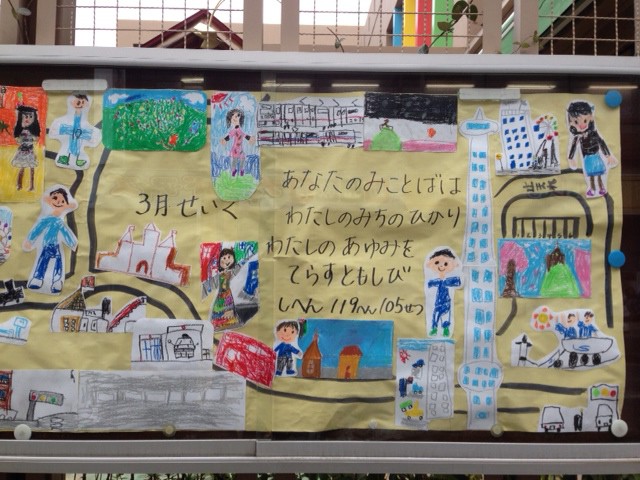 3月せいく
あなたのみことばは
わたしのみちのひかり
わたしのあゆみを
てらすともしび
しへん 119へん105せつ